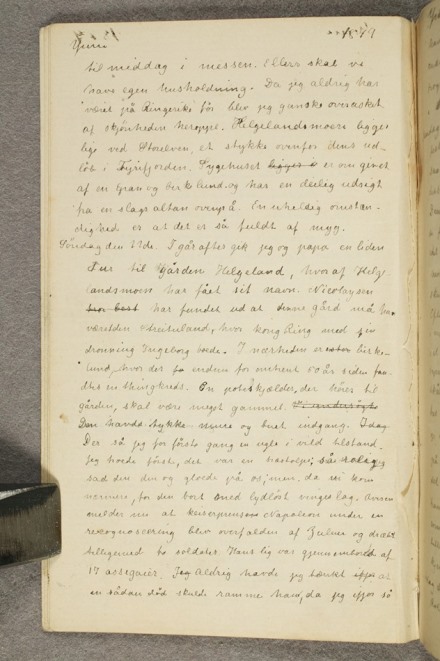 Juni 1879
til middag i messen. Ellers skal vi
have egen husholdning. Da jeg aldrig har
været på Ringerike før blev jeg ganske overrasket
af skjønheden heroppe. Helgelandsmoen ligger
lige ved Storelven, et stykke ovenfor dens ud-
løb i Tyrifjorden. Sygehuset ligger i er omgivet
af en gran og birkelund og har en deilig udsigt
fra en slags altan ovenpå. En uheldig omstæn-
dighed er at det er så fuldt af myg.
Søndag den 22de. Igår aftes gik jeg og papa en liden
tur til gården Helgeland, hvoraf Helge-
landsmoen har fået sit navn. Nicolaysen
har fundet ud at denne gård må ha
været den Steinsland, hvor kong Ring med sin
dronning Ingeborg boede. I nærheden er birke-
lund, hvor der endnu for omtrent 50 år siden fan-
dtes en thingkreds. En potetkjælder, der hører til
gården, skal være meget gammel.
Den havde tykke mure og buet indgang. Idag
Der så jeg for første gang en ugle i vild tilstand.
Jeg troede først, det var en
sad den der og gloede på os; men da vi kom
nærmere, for den bort med lydløst vingeslag. Aviserne
melder nu at keiserprinsen Napoleon under en
rekognoscering blev overfalden af Zuluer og dræbt
tilligemed to soldater. Hans lig var gjennemboret af
17 assegaier. Jeg Aldrig havde jeg tænkt ifjor at
en sådan død skulde ramme ham, da jeg ifjor så